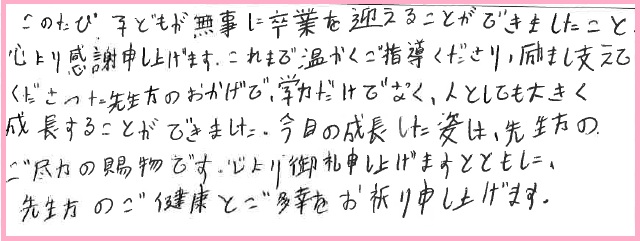 このたび、子どもが無事に卒業を迎えることができましたこと
心より感謝申し上げます。これまで温かくご指導くださり、励まし支えて
くださった先生方のおかげで、学力だけでなく、人としても大きく
成長することができました。今日の成長した姿は、先生方の
ご尽力の賜物です。心より御礼申し上げますとともに、
先生方のご健康とご多幸をお祈り申し上げます。